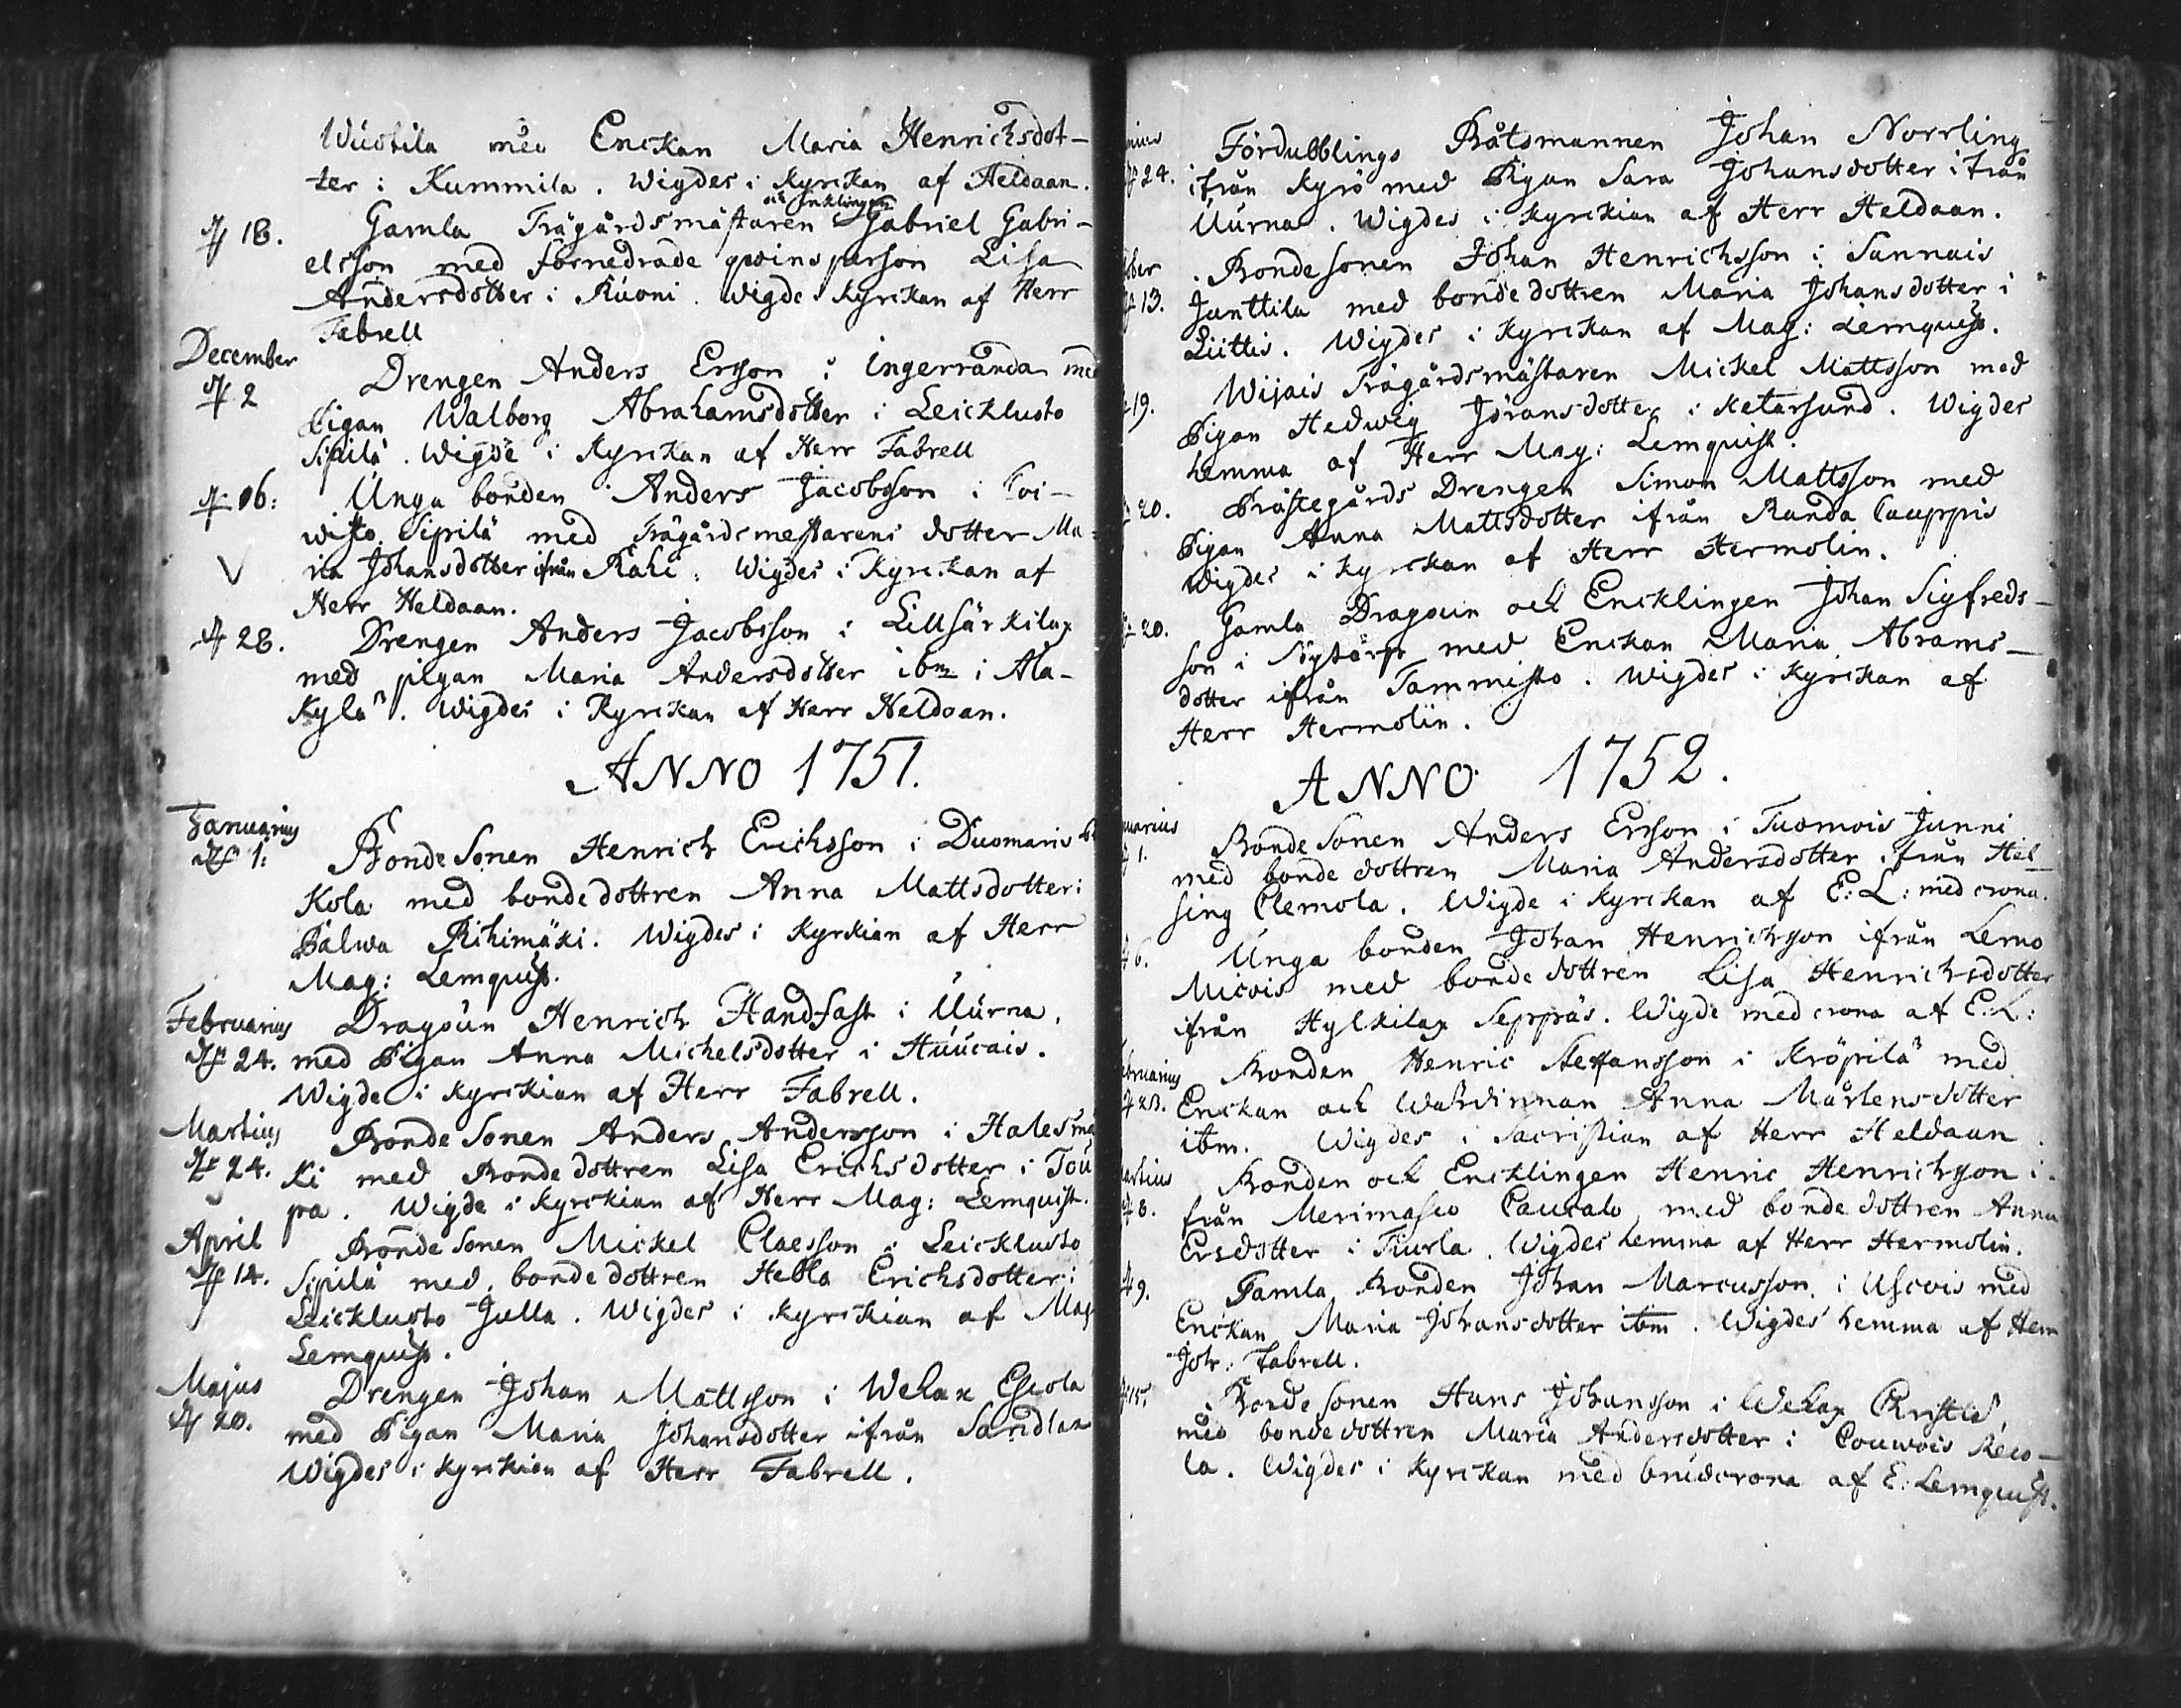 Wuostila med Enckan Maria Henrichsdot-
ter i Kummila. Wigdes i Kyrckan af Heldaan.
18. Gamla Trägårdsmästaren och Encklingen Gabriel Gabri-
elsson med förnedrade qwinsperson Lisa
Andersdotter i Ruoni. Wigde i Kyrckan af Herr
Fabrell
December
2 Drengen Anders Ersson i Ingerranda med
Pigan Walborg Abrahamsdotter i Leicklusto
Sipilä. Wigde i Kyrckan af Herr Fabrell
16: Unga bonden Anders Jacobsson i Coi-
wisto Sipilä med Trägårdsmestarens dotter Ma-
ria Johansdotter ifrån Rahi. Wigdes i Kyrckan af
Herr Heldaan.
28. Drengen Anders Jacobsson i Lillsärkilax
med pigan Maria Andersdotter ibm i Ala-
Kylä. Wigdes i Kyrckan af Herr Heldaan.
ANNO 1751.
Januarius
1: Bonde Sonen Henrich Erichsson i Duomaris
Kola med bondedottren Anna Mattsdotter i
Palwa Rihimäki. Wigdes i Kyrckian af Herr
Mag: Lemquist.
Februarius Dragoun Henrich Handfast i Uurna,
24. med Pigan Anna Michelsdotter i Huucais.
Wigde i Kyrckian af Herr Fabrell.
Martius Bonde Sonen Anders Andersson i Halesmä
24. ki med Bondedottren Lisa Erichsdotter i Tou
pa. Wigde i Kyrckian af Herr Mag: Lemquist.
April Bonde Sonen Mickel Claesson i Leicklusto
14. Sipilä med bondedottren Hebla Erichsdotter i
Leicklusto Julla. Wigdes i Kyrckian af Mag
Lemquist.
Majus Drengen Johan Mattsson i Wehax Escola
20. med Pigan Maria Johansdotter ifrån Sandlax
Wigdes i Kyrckian af Herr Fabrell.
nius Fördubblings Båtsmannen Johan Norrling
24. ifrån Kyrö med Pigan Sara Johansdotter ifrån
Uurna. Wigdes i Kyrckian af Herr Heldaan.
ber Bonde sonen Johan Henrichsson i Sannais
13. Junttila med bondedottren Maria Johansdotter i
Liittis. Wigdes i Kyrckan af Mag: Lemquist.
19. Wijais Trägårdsmästaren Mickel Mattsson med
Pigan Hedwig Jöransdotter i Ketarsund. Wigdes
hemma af Herr Mag: Lemquist.
20. Prästegårds Drengen Simon Mattsson med
Pigan Anna Mattsdotter ifrån Randa Cauppis
Wigdes i Kyrckan af Herr Hermolin.
20. Gamla Dragoun och Encklingen Johan Sigfreds-
son i Nytårp med Enckan Maria Abrams-
dotter ifrån Tammisto. Wigdes i Kyrckan af
Herr Hermolin.
ANNO 1752.
nuarius
1. Bonde Sonen Anders Ersson i Tuomois Junni
med bondedottren Maria Andersdotter ifrån Hel-
sing Clemola. Wigde i Kyrckan af E: L: med crona.
6. Unga bonden Johan Henrichsson ifrån Lemo
Micois med bondedottren Lisa Henrichsdotter
ifrån Hylkilax Seppräs. Wigde med crona af E: L:
bruarius Bonden Henric Steffansson i Kröpilä med
23. Enckan och Wärdinnan Anna Mårtensdotter
ibm. Wigdes i Sacristian af Herr Heldaan.
artius Bonden och Encklingen Henric Henrichsson i
8. från Merimasco Caucalo, med bondedottren Anna
Ersdotter i Tiurla. Wigdes hemma af Herr Hermolin.
9. Gamla Bonden Johan Marcusson i Uscois med
Enckan Maria Johansdotter ibm. Wigdes hemma af Herr
Joh: Fabrell.
15. Bonde sonen Hans Johansson i Wehax Pristlä
med bondedottren Maria Andersdotter i Couwois Reco-
la. Wigdes i Kyrckan med brudcrona af E: Lemquist.